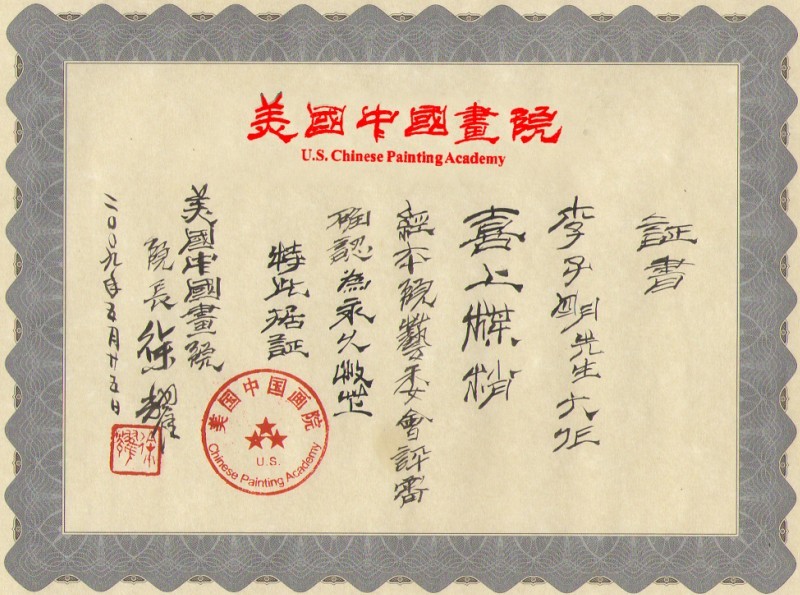 美國中國畫院
U.S. Chinese Painting Academy
証書
李子明先生大作
喜上楳梢
經本院藝委會評審
確認為永久收藏
特此据証
美國中國畫院
院長 徐耀
二〇〇九年五月廿五日
美国中国画院
U.S.
Chinese Painting Academy
徐耀